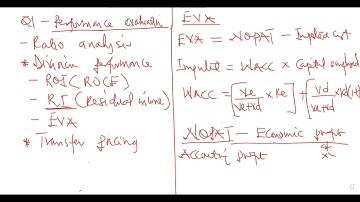 Q1 - Performance evaluation
- Ratio analysis
* Division performance
- ROI (ROCE)
- RI (Residual income)
- EVA
* Transfer pricing
EVA
EVA = NOPAT - Imputed cost
Imputed = WACC x Capital employed
WACC = [Ve/Ve+Vd x Ke] + [Vd/Ve+Vd x Kd(1-t)]
NOPAT - Economic profit
Accounting profit x